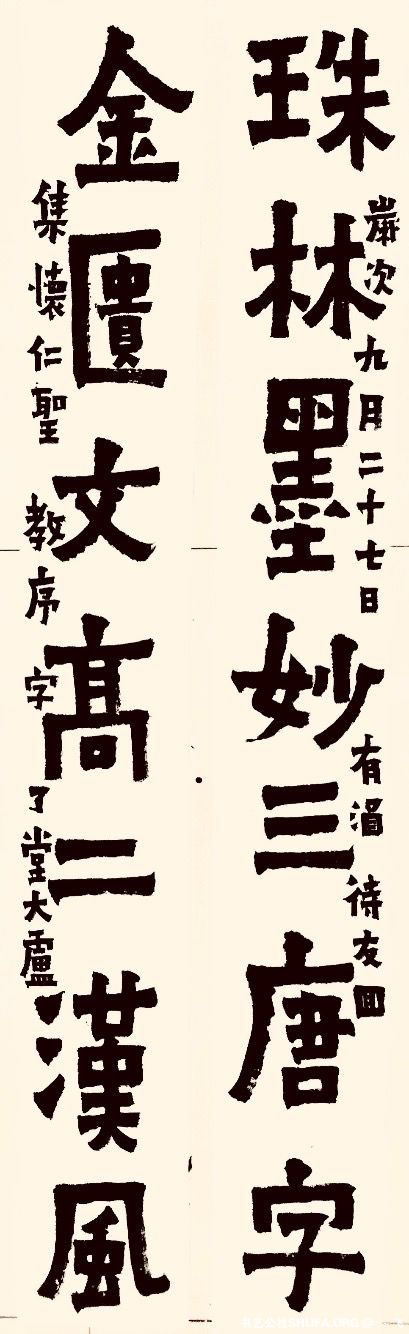 珠林墨妙三唐字
歲次九月二十七日 有酒待友回
金匱文高二漢風
集懷仁聖教序字 了堂大盧